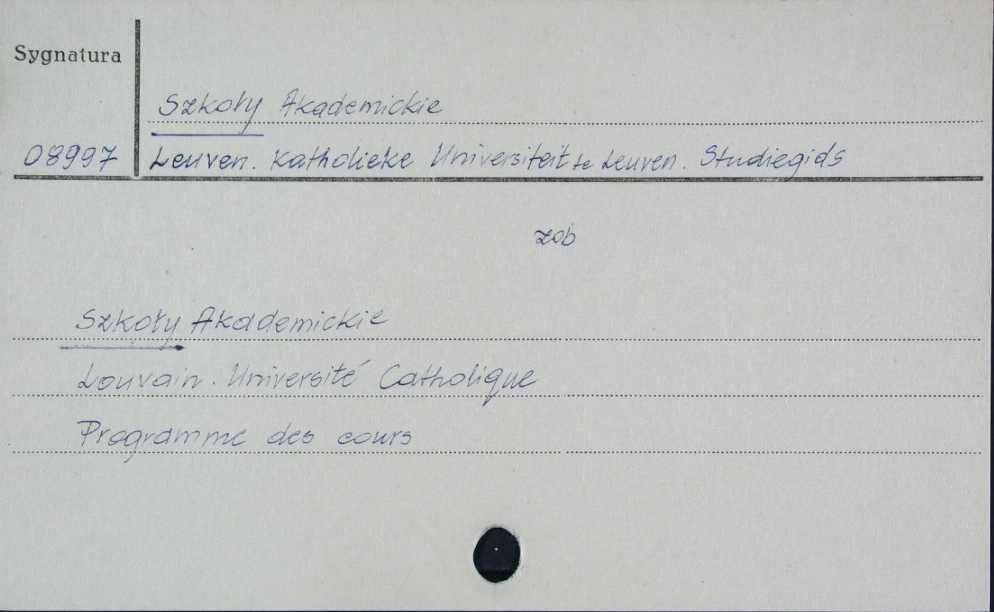 Sygnatura
Szkoły Akademickie
08997 Leuven. Katholieke Universiteit te Leuven. Studiegids
zob
Szkoły Akademickie
Louvain. Université Catholique
Programme des cours